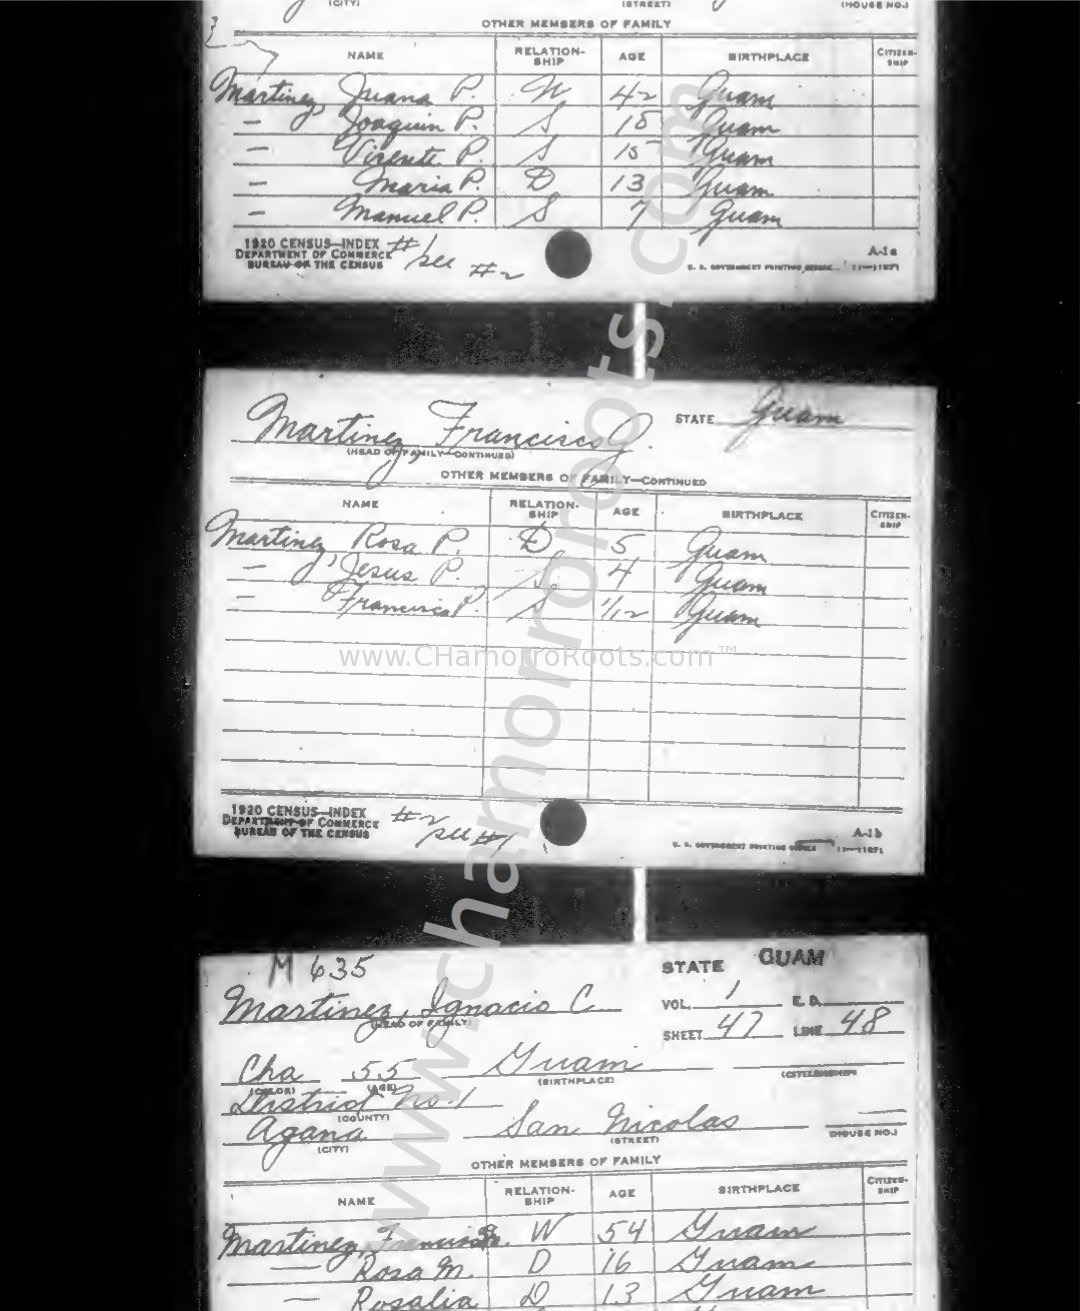 (CITY) (STREET) (HOUSE NO.)
OTHER MEMBERS OF FAMILY
NAME RELATION-SHIP AGE BIRTHPLACE CITIZEN-SHIP
Martinez, Juana P. W 42 Guam
— Joaquin P. S 18 Guam
— Vicente P. S 15 Guam
— Maria P. D 13 Guam
— Manuel P. S 7 Guam
1920 CENSUS—INDEX #1
DEPARTMENT OF COMMERCE see #2 A-1a
BUREAU OF THE CENSUS U. S. GOVERNMENT PRINTING OFFICE 11—11871
Martinez, Francisco J. STATE Guam
(HEAD OF FAMILY—CONTINUED)
OTHER MEMBERS OF FAMILY—CONTINUED
NAME RELATION-SHIP AGE BIRTHPLACE CITIZEN-SHIP
Martinez, Rosa P. D 5 Guam
— Jesus P. S 4 Guam
— Francisco P. S 1/12 Guam
www.CHamorroRoots.com™
1920 CENSUS—INDEX #2
DEPARTMENT OF COMMERCE see #1 A-1b
BUREAU OF THE CENSUS U. S. GOVERNMENT PRINTING OFFICE 11—11871
www.chamorroroots.com
M 635 STATE GUAM
Martinez, Ignacio C VOL. 1 E. D.
(HEAD OF FAMILY) SHEET 47 LINE 48
Cha 55 Guam
(COLOR) (AGE) (BIRTHPLACE) (CITIZENSHIP)
District No. 1
(COUNTY)
Agana San Nicolas
(CITY) (STREET) (HOUSE NO.)
OTHER MEMBERS OF FAMILY
NAME RELATION-SHIP AGE BIRTHPLACE CITIZEN-SHIP
Martinez, W 54 Guam
— Rosa M. D 16 Guam
— Rosalia D 13 Guam